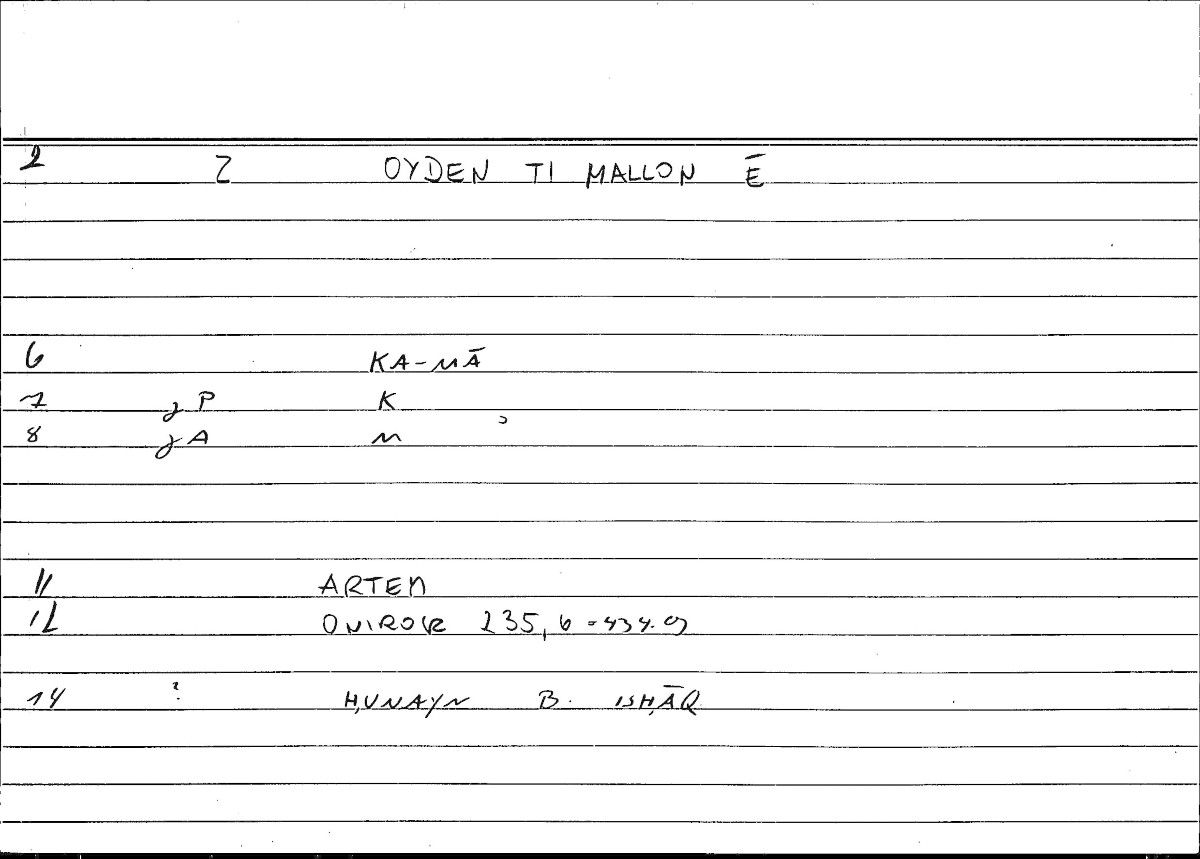 2 Z OYDEN TI MALLON Ē
6 KA-MĀ
7 J P K
8 J A M
11 ARTEM
12 ONIROKR 235, 6 = 434.9
14 ? ḤUNAYN B. ISḤĀQ